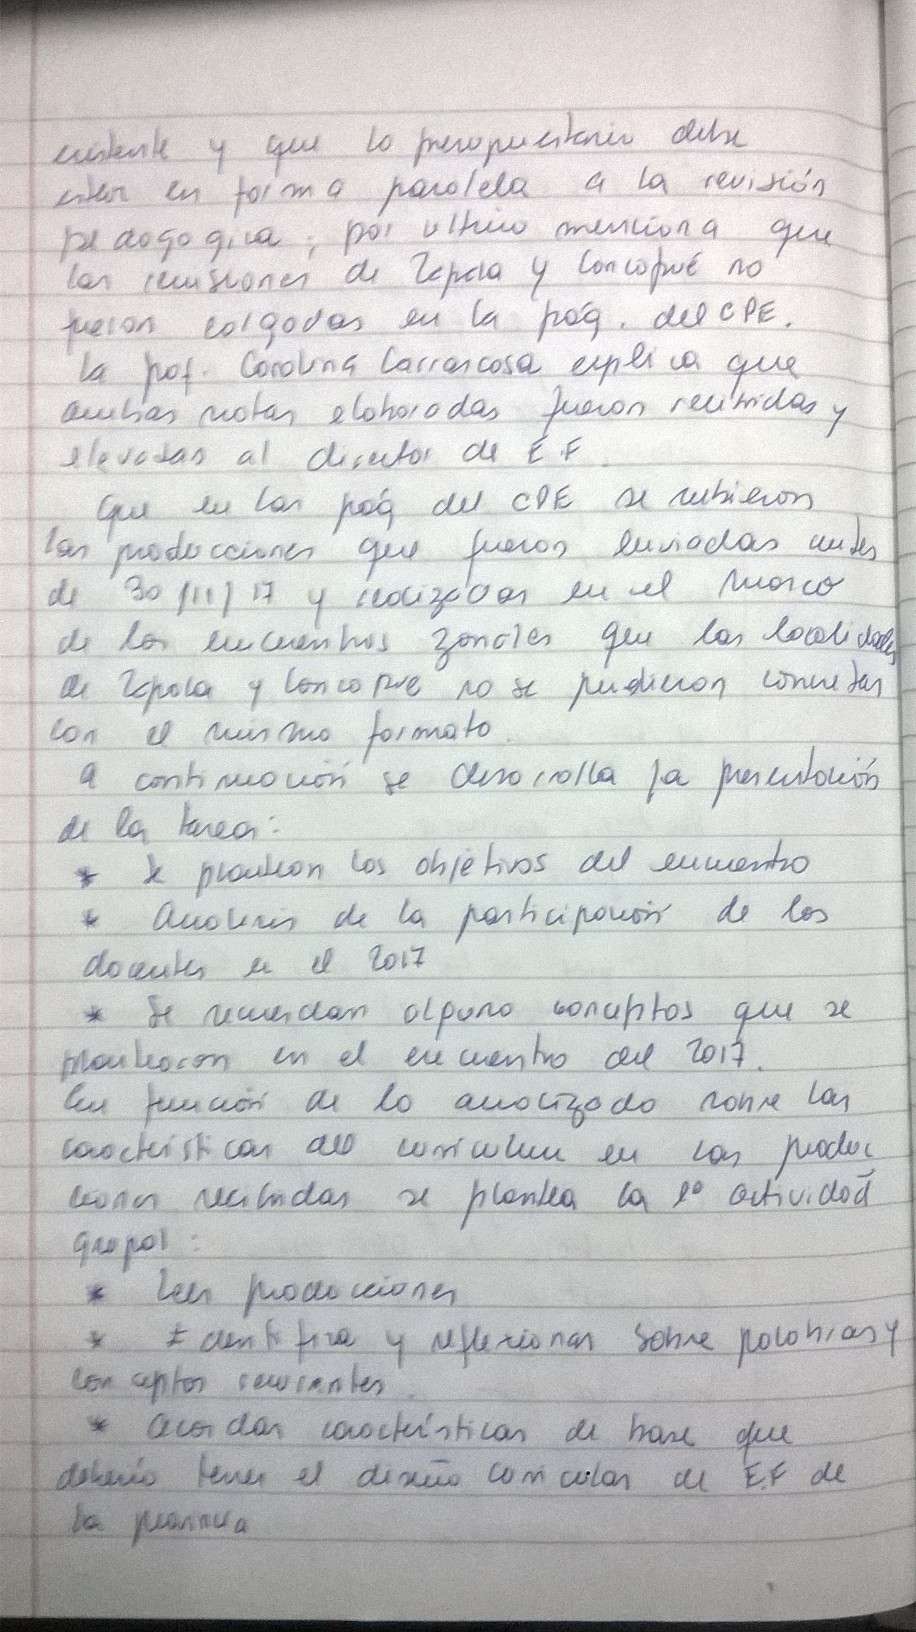 existente y que lo presupuestario debe
estar en forma paralela a la revisión
pedagogica; por ultimo menciona que
las revisiones de Zapala y Loncopué no
fueron colgadas en la pág. del CPE.
La prof. Carolina Carrascosa explica que
ambas notas elaboradas fueron recibidas y
elevadas al director de E.F.
Que en las pág del CPE se subieron
las producciones que fueron enviadas antes
de 30/11/17 y realizadas en el marco
de los encuentros zonales que las localidades
de Zapala y Loncopue no se pudieron concretar
con el mismo formato.
A continuación se desarrolla la presentación
de la tarea:
* Se plantean los objetivos del encuentro
* Analisis de la participación de los
docentes en el 2017
* Se recuerdan alguno conceptos que se
plantearon en el encuentro del 2017.
En función de lo analizado sobre las
características del curriculum en las produc
ciones recibidas se plantea la 1º actividad
grupal:
* Leer producciones
* Identifica y reflexionar sobre palabras y
conceptos recurrentes.
* Acordar características de base que
debería tener el diseño curricular de E.F de
la provincia